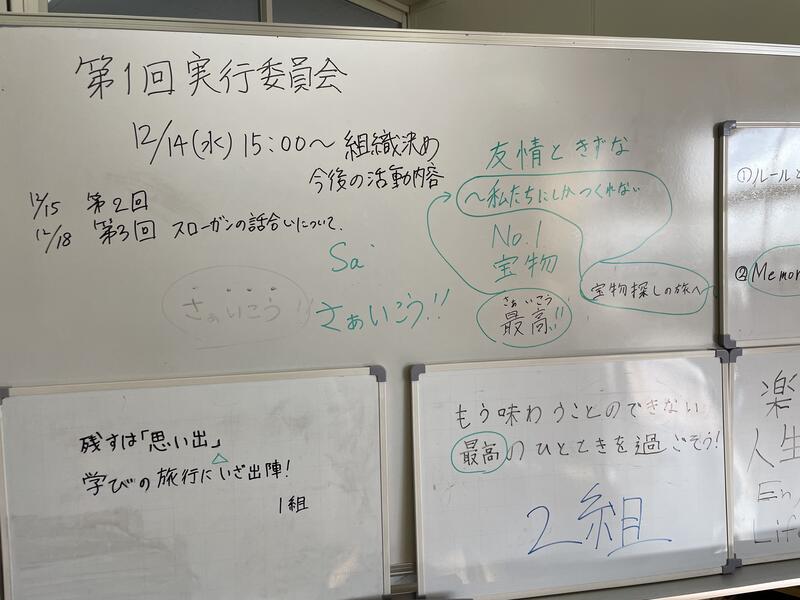 第1回 実行委員会
12/14(水) 15:00～ 組織決め
今後の活動内容
12/15 第2回
12/18 第3回 スローガンの話合いについて.
友情ときずな
～私たちにしかつくれない
No.1
宝物
宝物探しの旅へ～
さぁいこう
最高!!
Sa
さぁいこう!!
さぁいこう!!
①ルールと
②Memor
残すは「思い出」
学びの旅行にいざ出陣!
1組
もう味わうことのできない
最高のひとときを過ごそう!
2組
楽
人生
Enj
Life